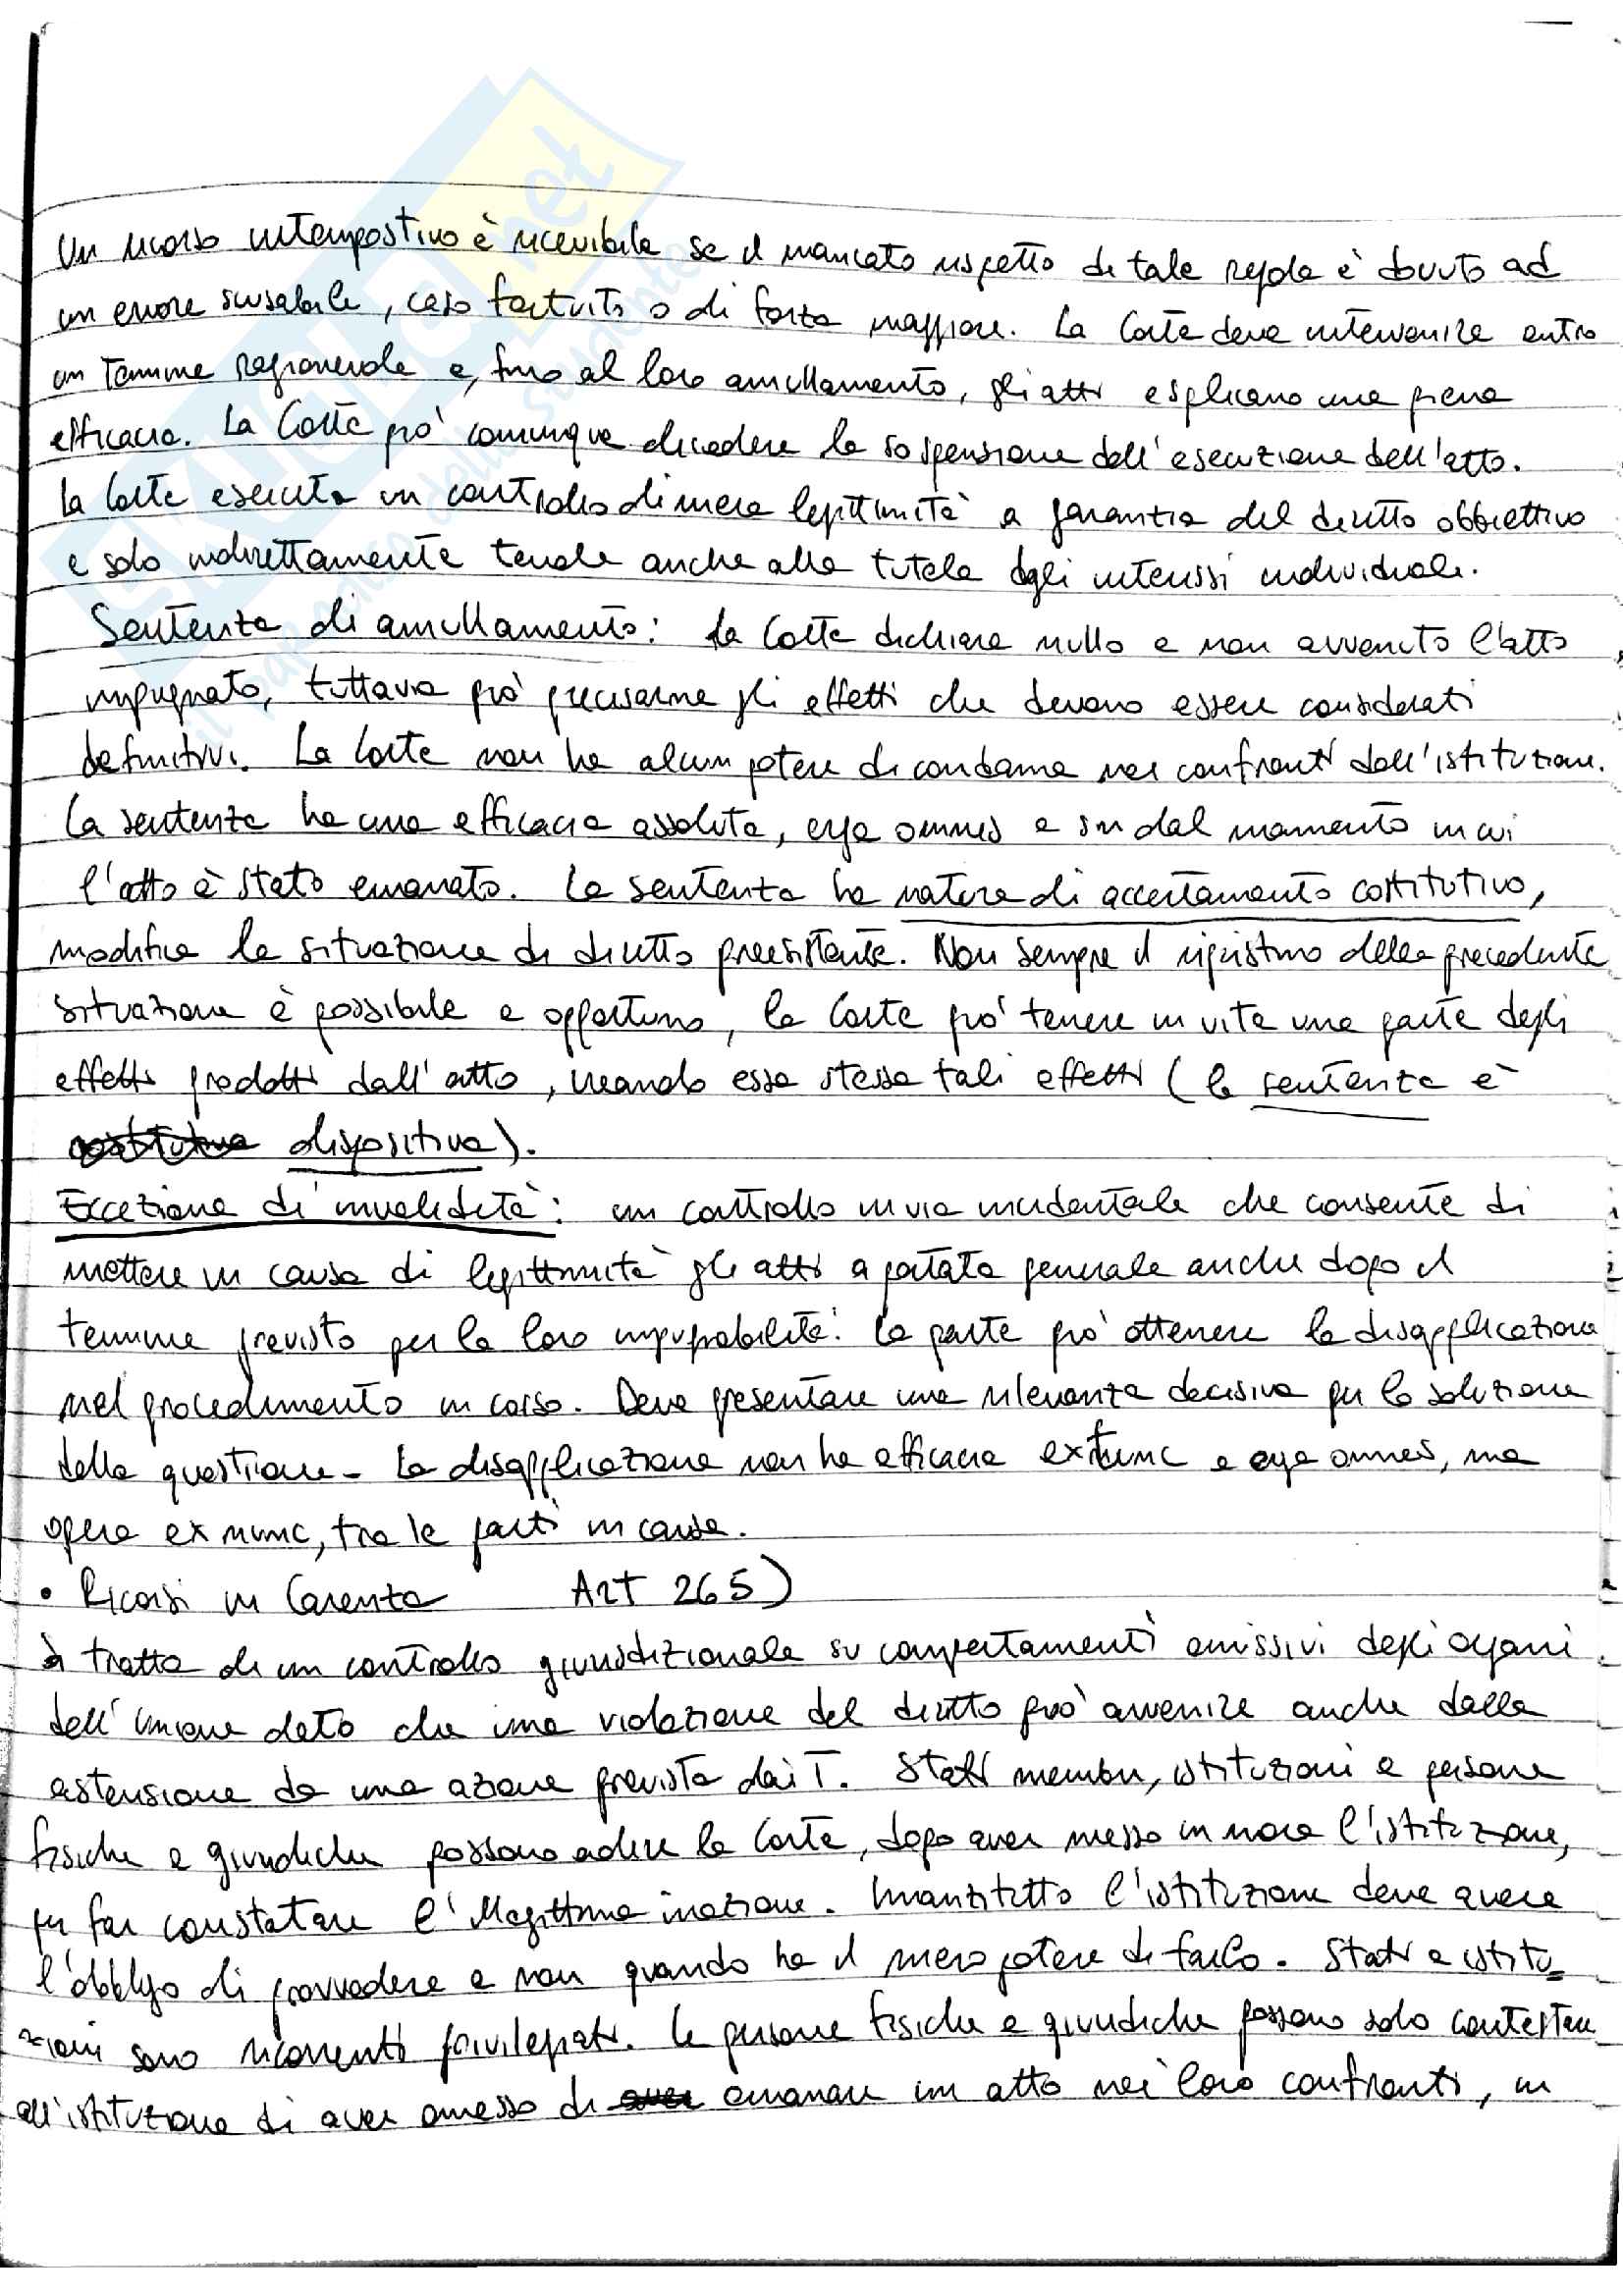 Un ricorso intempestivo è ricevibile se il mancato rispetto di tale regola è dovuto ad
un errore scusabile, caso fortuito o di forza maggiore. La Corte deve intervenire entro
un termine ragionevole e, fino al loro annullamento, gli atti esplicano una piena
efficacia. La Corte può comunque decidere la sospensione dell'esecuzione dell'atto.
La Corte esercita un controllo di mera legittimità a garanzia del diritto obbiettivo
e solo indirettamente tende anche alla tutela degli interessi individuali.
Sentenza di annullamento: La Corte dichiara nullo e non avvenuto l'atto
impugnato, tuttavia può precisarne gli effetti che devono essere considerati
definitivi. La Corte non ha alcun potere di condanna nei confronti dell'istituzione.
La sentenza ha una efficacia assoluta, erga omnes e sin dal momento in cui
l'atto è stato emanato. La sentenza ha natura di accertamento costitutivo,
modifica la situazione di diritto preesistente. Non sempre il ripristino della precedente
situazione è possibile e opportuno, la Corte può tenere in vita una parte degli
effetti prodotti dall'atto, creando essa stessa tali effetti (la sentenza è
dispositiva).
Eccezione di invalidità: un controllo in via incidentale che consente di
mettere in causa di legittimità gli atti a portata generale anche dopo il
termine previsto per la loro impugnabilità. La parte può ottenere la disapplicazione
nel procedimento in corso. Deve presentare una rilevanza decisiva per la soluzione
della questione. La disapplicazione non ha efficacia ex tunc e erga omnes, ma
opera ex nunc, tra le parti in causa.
• Ricorsi in Carenza Art 265)
Si tratta di un controllo giurisdizionale su comportamenti omissivi degli organi
dell'Unione dato che una violazione del diritto può avvenire anche dalla
astensione da una azione prevista dai T. Stati membri, istituzioni e persone
fisiche e giuridiche possono adire la Corte, dopo aver messo in mora l'istituzione,
per far constatare l'illegittima inazione. Innanzitutto l'istituzione deve avere
l'obbligo di provvedere e non quando ha il mero potere di farlo. Stati e istitu=
zioni sono ricorrenti privilegiati. Le persone fisiche e giuridiche possono solo contestare
all'istituzione di aver omesso di emanare un atto nei loro confronti, in